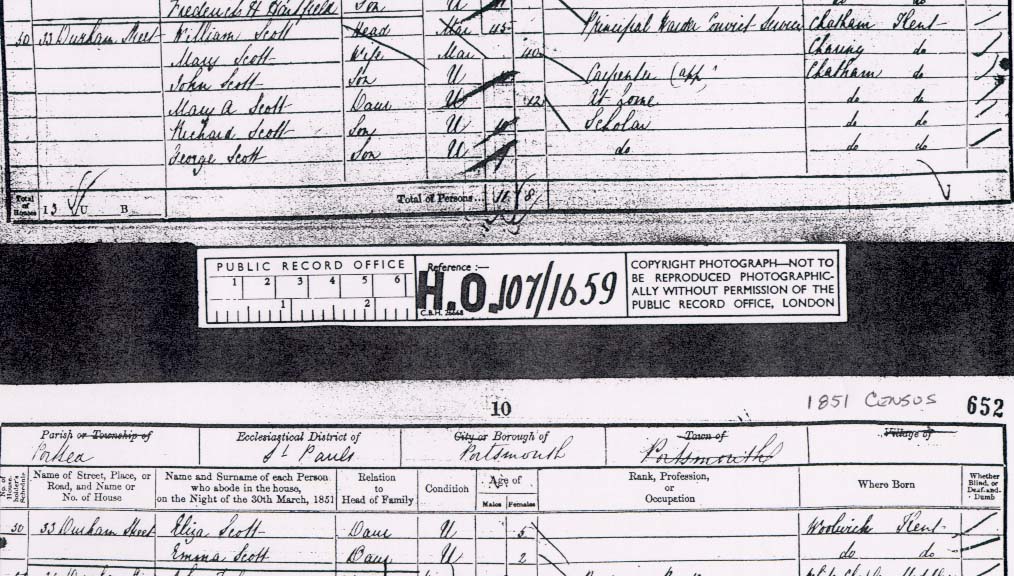 Frederick H Hatfield Son U do do
30 33 Durham Street William Scott Head Mar 45 Principal Warder Convict Service Chatham Kent
Mary Scott Wife Mar 40 do
John Scott Son U Carpenter (app) Chatham do
Mary A Scott Daur U 12 At home do do
Richard Scott Son U 10 Scholar do do
George Scott Son U do do do
Total of Houses I 3 U B Total of Persons... 11 8
PUBLIC RECORD OFFICE
1 2 3 4 5 6
1 2
Reference :—
H.O. 107/1659
COPYRIGHT PHOTOGRAPH—NOT TO
BE REPRODUCED PHOTOGRAPHIC-
ALLY WITHOUT PERMISSION OF THE
PUBLIC RECORD OFFICE, LONDON
10 1851 CENSUS 652
Parish or Township of Ecclesiastical District of City or Borough of Town of Village of
Portsea St Pauls Portsmouth Portsmouth
No. of Householder's Schedule Name of Street, Place, or Road, and Name or No. of House Name and Surname of each Person who abode in the house, on the Night of the 30th March, 1851 Relation to Head of Family Condition Age of Males Females Rank, Profession, or Occupation Where Born Whether Blind, or Deaf-and-Dumb
30 33 Durham Street Eliza Scott Daur U 5 Woolwich Kent
Emma Scott Daur U 2 do do